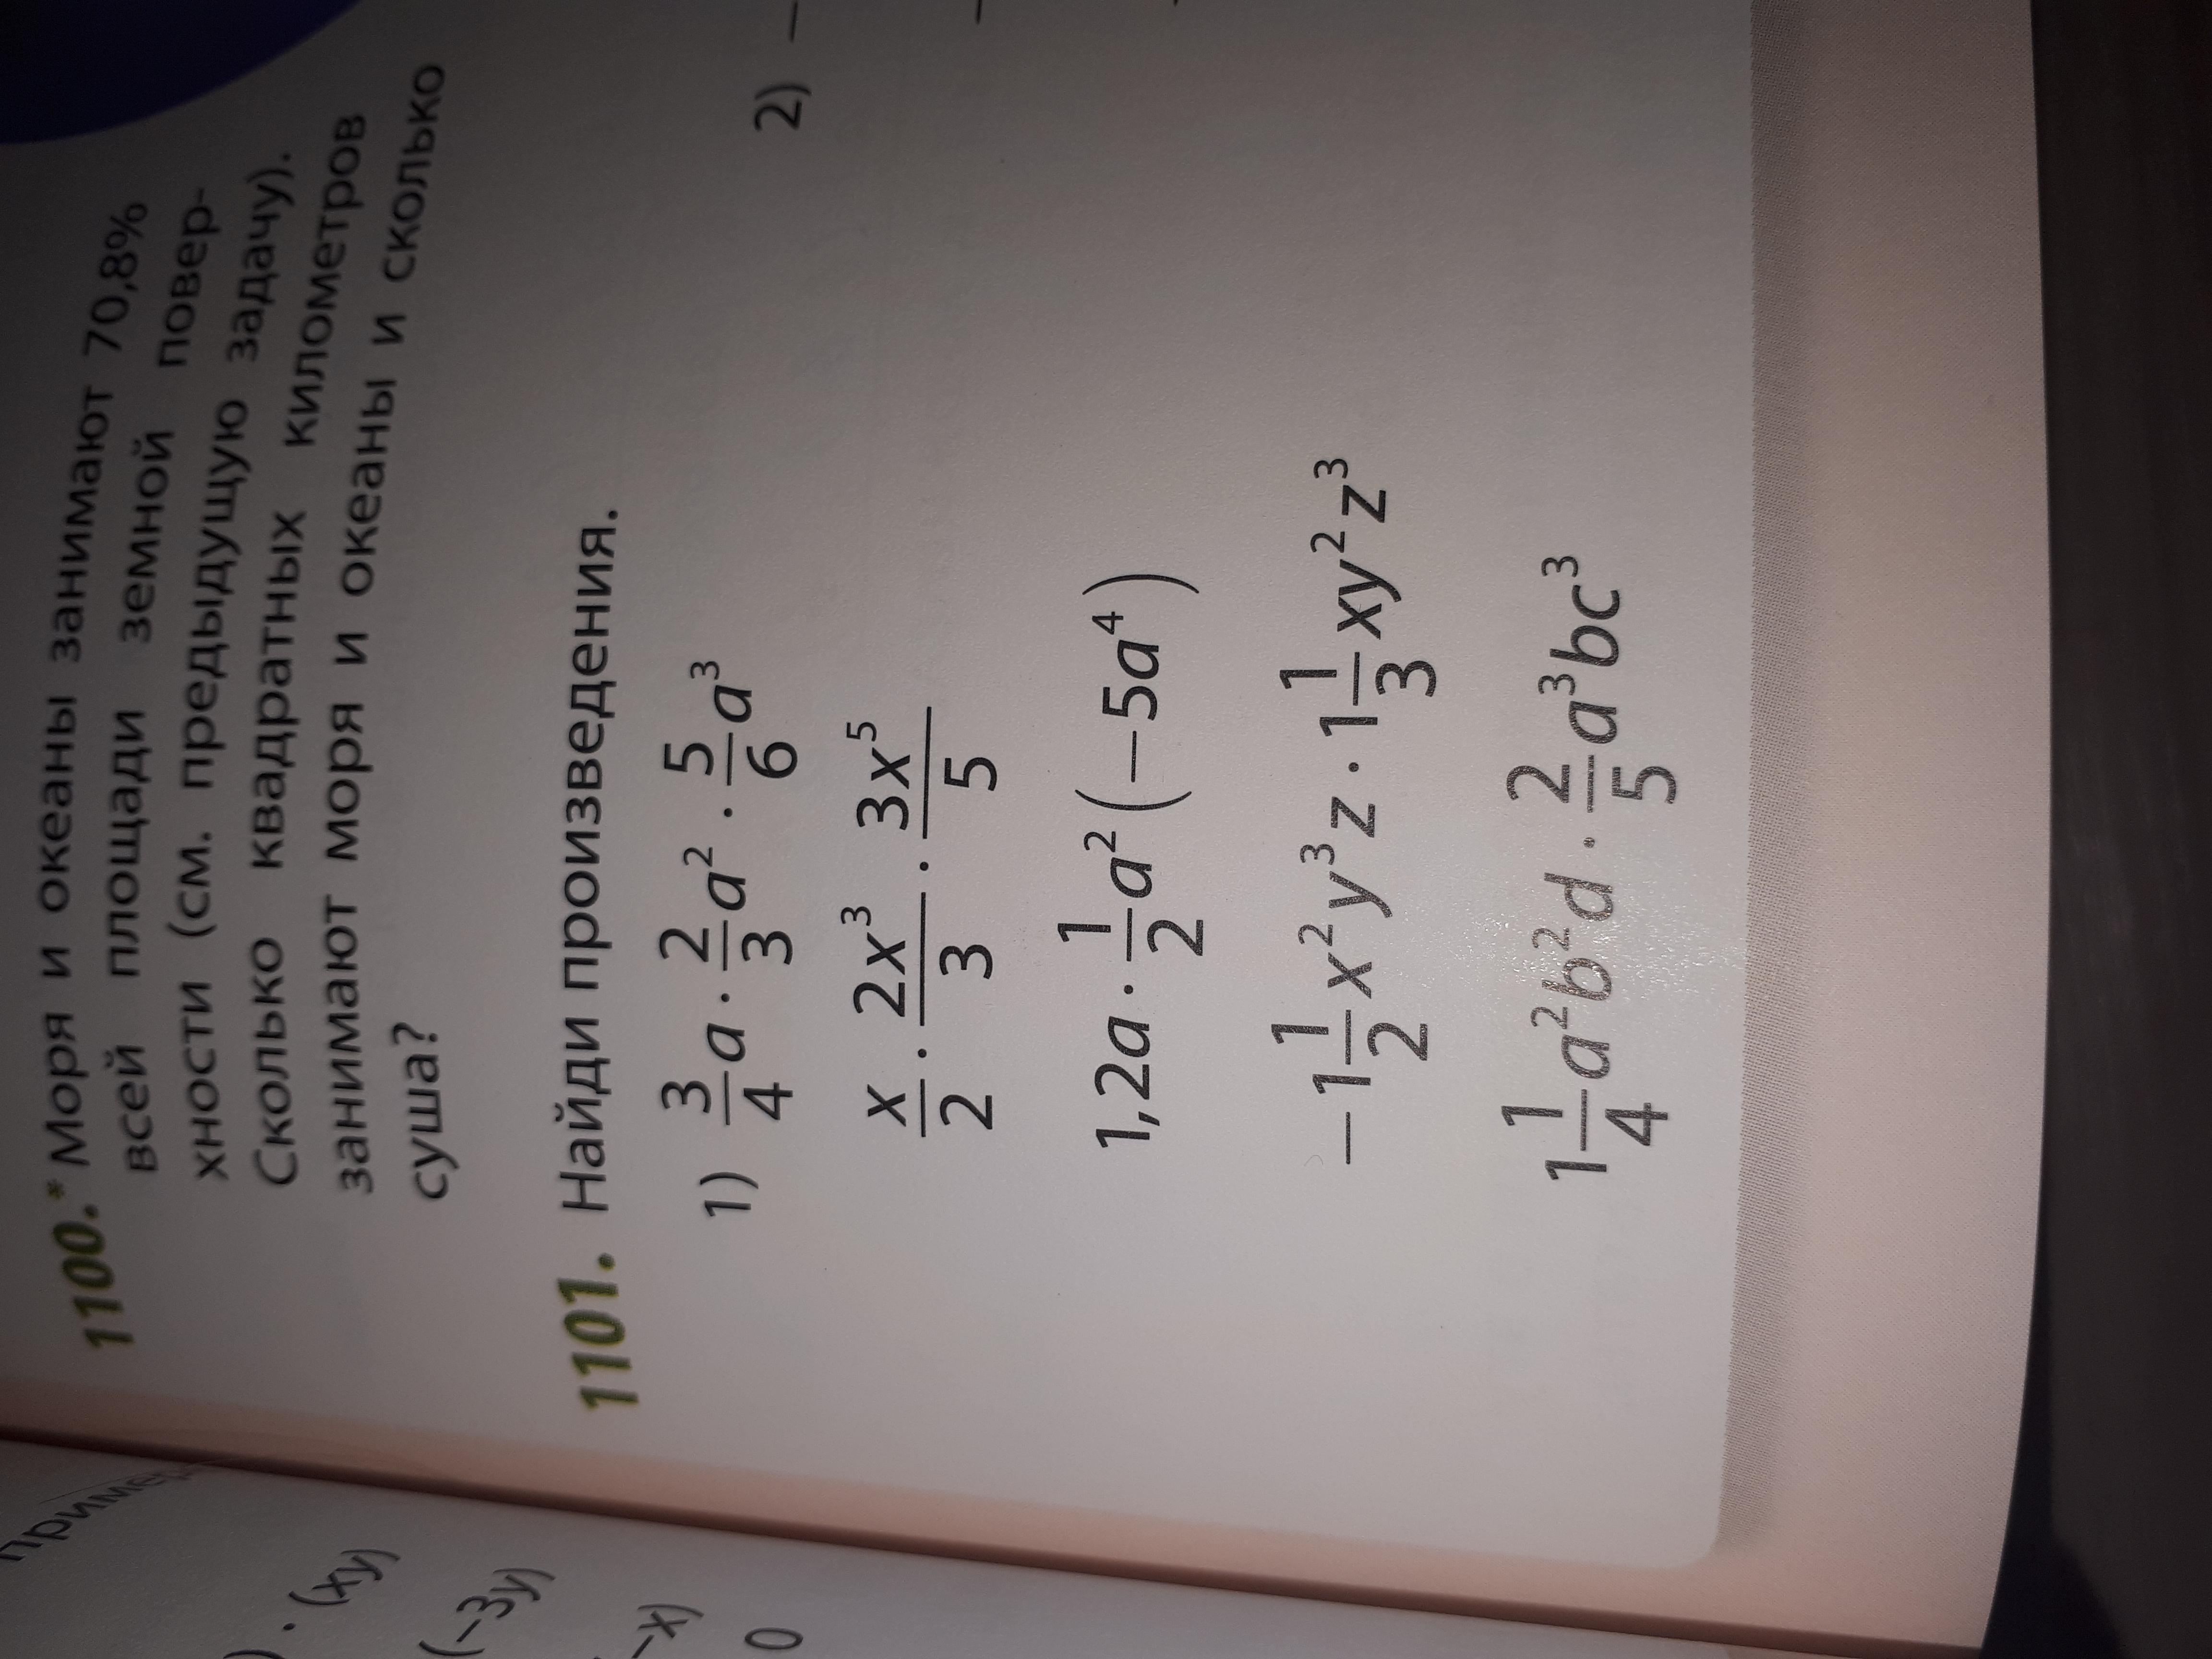 1100.* Моря и океаны занимают 70,8%
всей площади земной повер-
хности (см. предыдущую задачу).
Сколько квадратных километров
занимают моря и океаны и сколько
суша?
1101. Найди произведения.
1) 3/4 a · 2/3 a² · 5/6 a³
2) –
x/2 · 2x³/3 · 3x⁵/5
1,2a · 1/2 a² (−5a⁴)
−1 1/2 x²y³z · 1 1/3 xy²z³
1 1/4 a²b²d · 2/5 a³bc³
) · (xy)
(−3y)
−x)
0